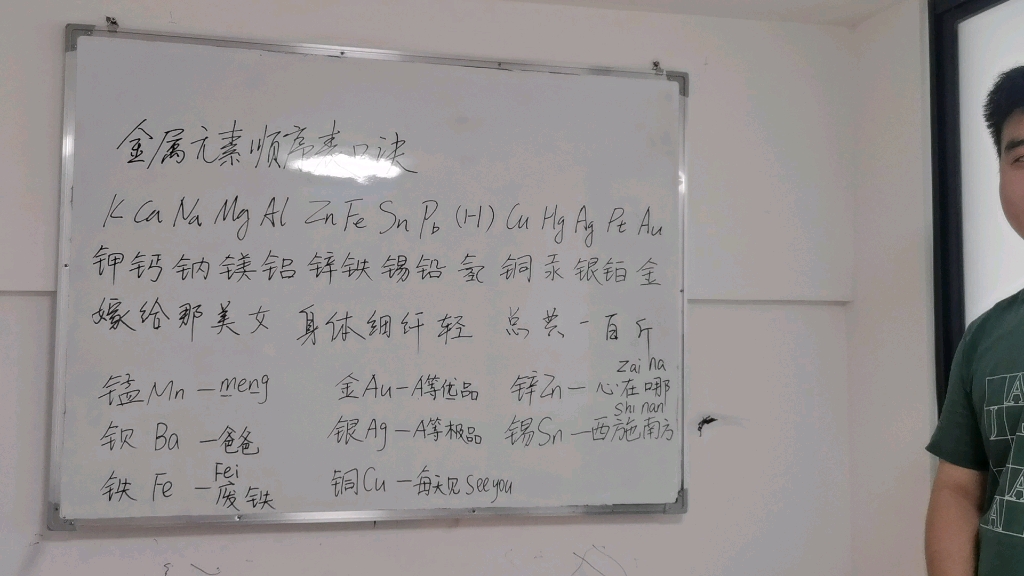 金属元素顺序表口诀
K Ca Na Mg Al Zn Fe Sn Pb (H) Cu Hg Ag Pt Au
钾 钙 钠 镁 铝 锌 铁 锡 铅 氢 铜 汞 银 铂 金
嫁 给 那 美 女 身 体 细 纤 轻 总 共 一 百 斤
锰 Mn — meng 金 Au — A等优品 锌 Zn — 心在哪 zai na
钡 Ba — 爸爸 银 Ag — A等极品 锡 Sn — 西施南方 shi nan
铁 Fe — 废铁 Fei 铜 Cu — 每天见 See you